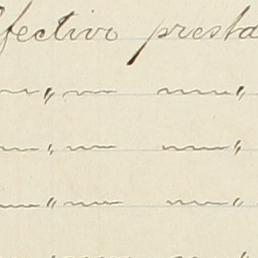 fectivo presta
〃 〃
〃 〃
〃 〃